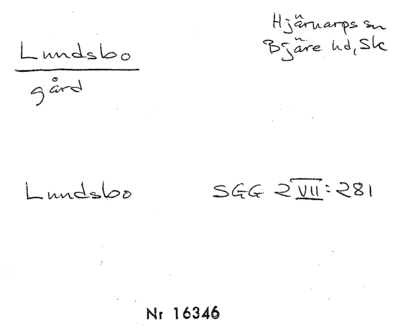 Lundsbo
gård
Hjärnarps sn
Bjäre hd, Sk
Lundsbo
SGG 2 VII: 281
Nr 16346